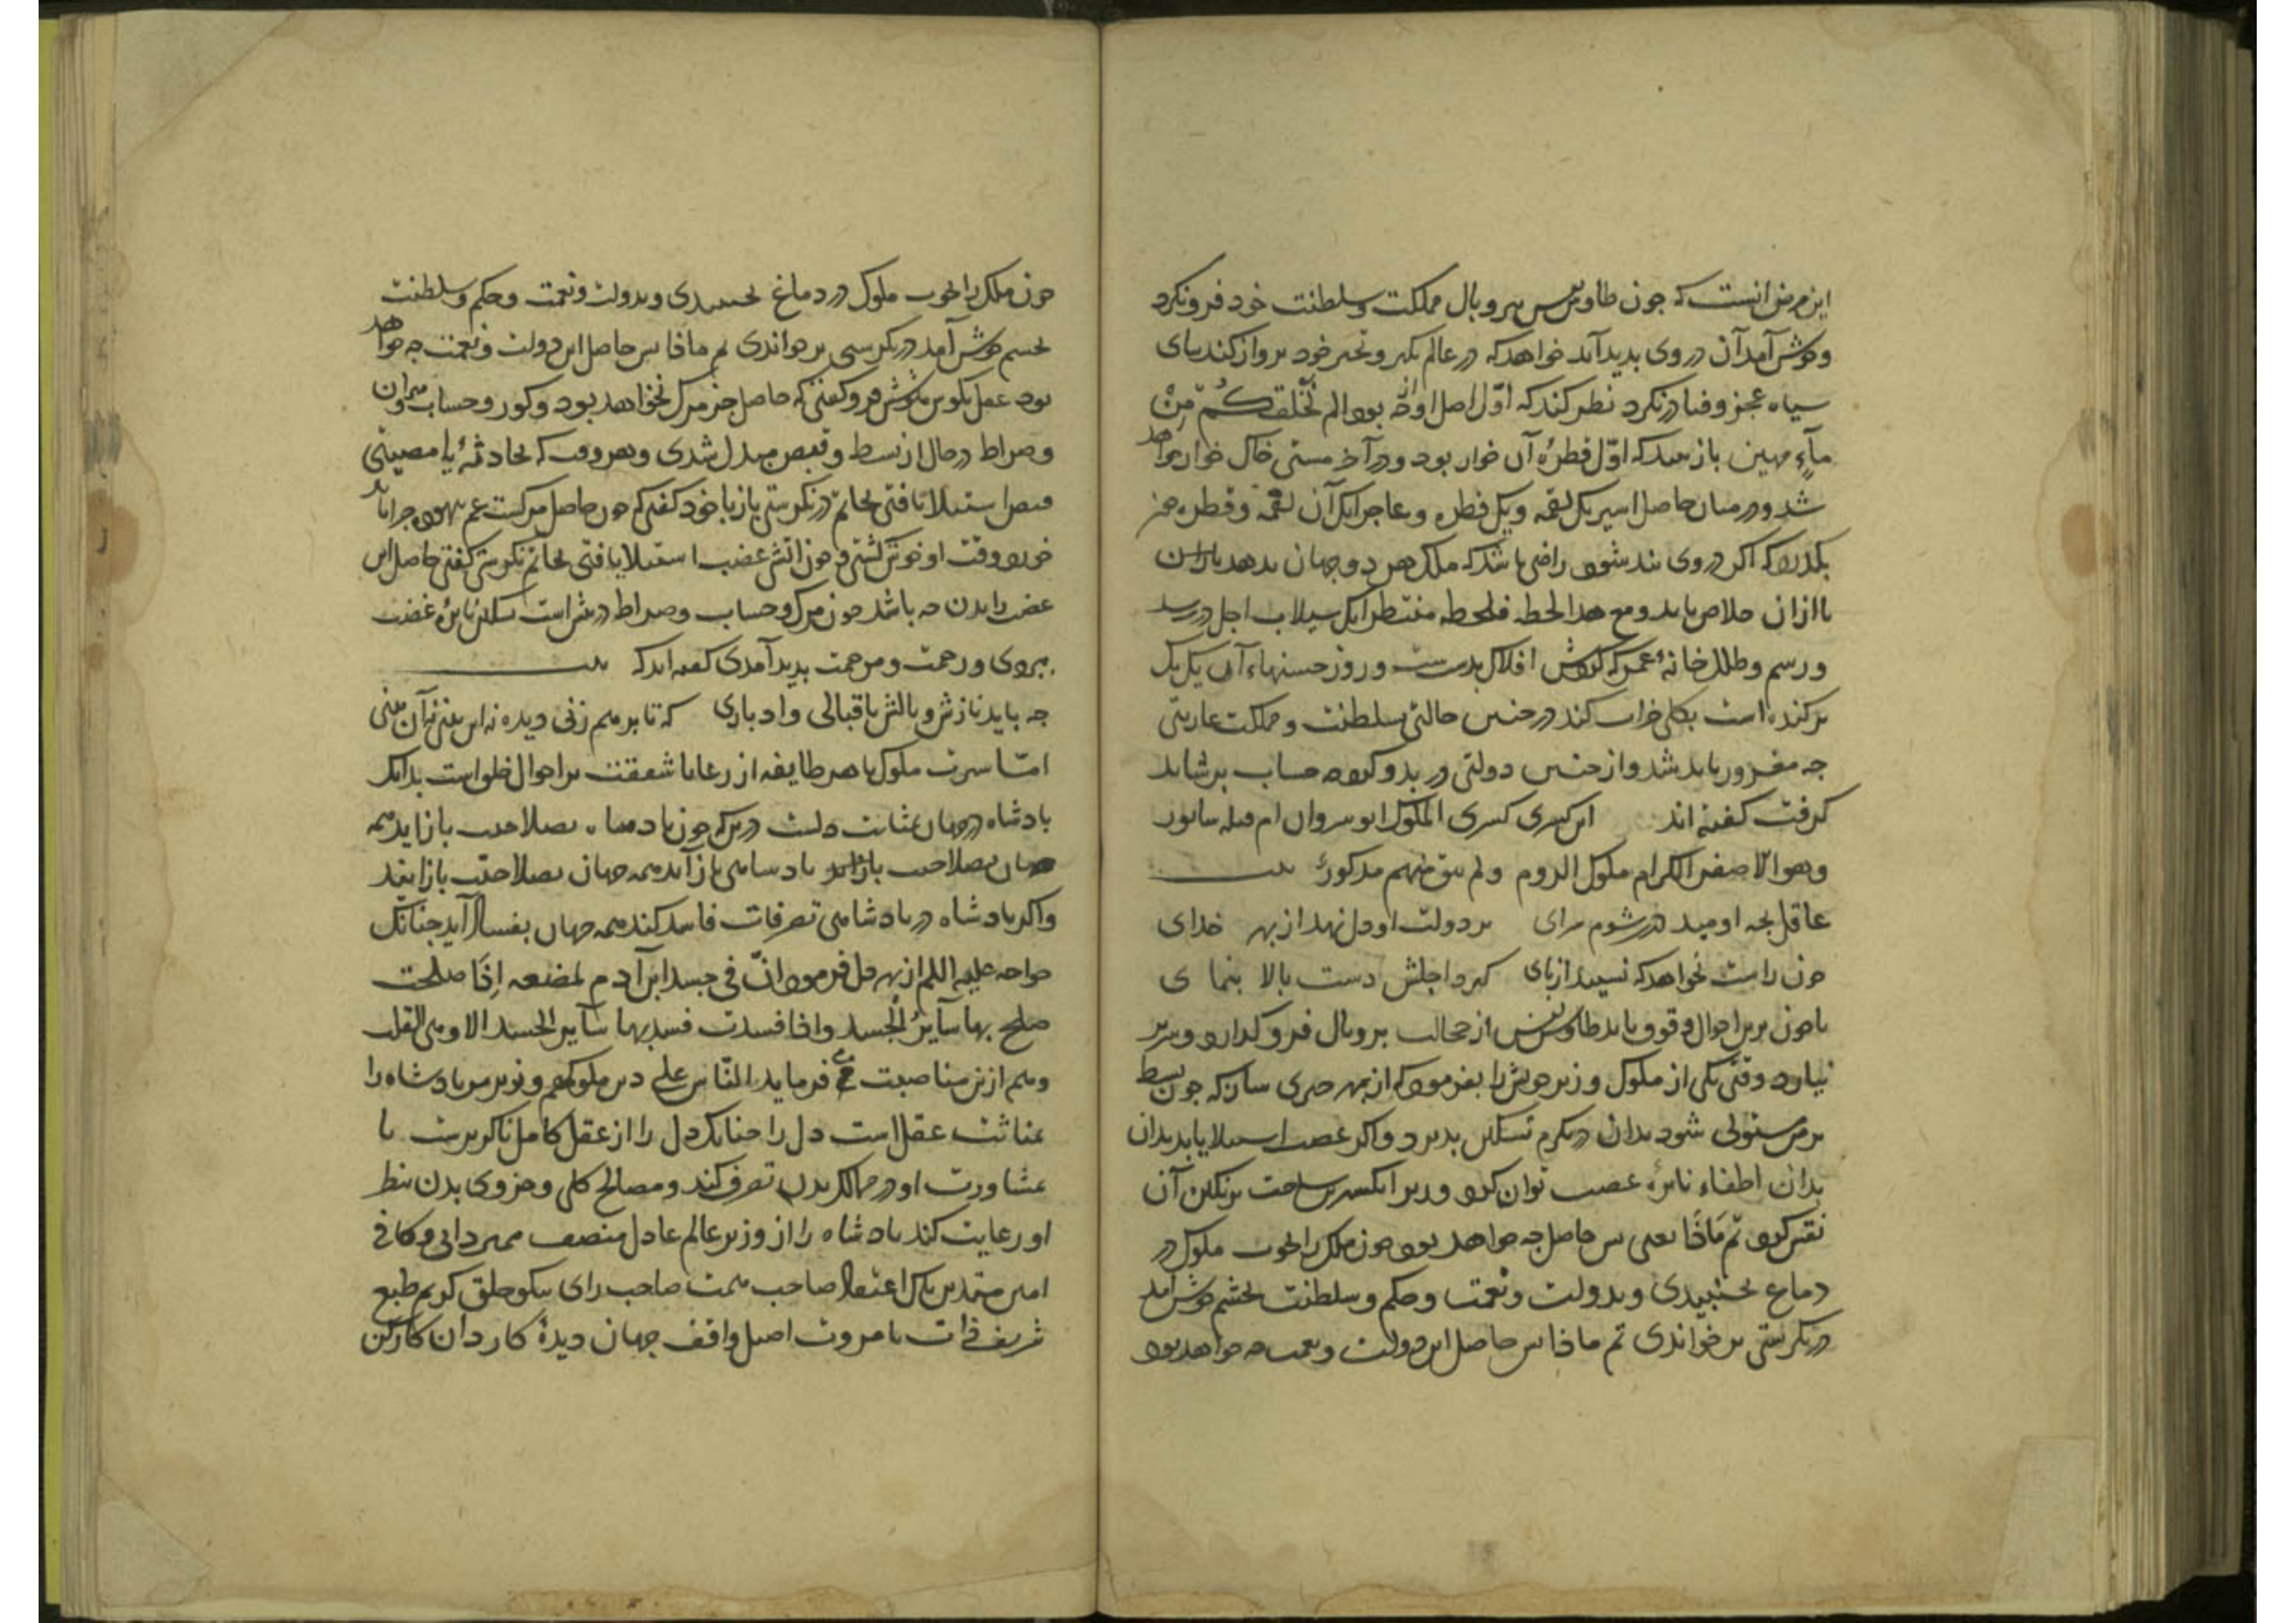 این مرض آنست که چون طاوس بپر و بال مملکت و سلطنت خود فرونکرد
و خوش آمد آن در وی پدید آید خواهد که در عالم تکبر و تجبر خود پرواز کند بپای
سیاه عجز و فنا درنکرد نظر کند که اوّل اصل او چه بوده الم نخلقکم مِنْ
مآءٍ مهین باز بیند که اوّل قطرهٔ آب خوار بود و در آخر مشتی خاک خوار خواهد
شد و در میان حاصل اسیر یک لقمه و یک قطره و عاجر آنک آن لقمه و قطره جز
بکذرد که اکر در وی بند شود راضی باشد که ملک هر دو جهان بدهد
تا از آن خلاص یابد و مع هذا لحظه فلحظه منتظر آنک سیلاب اجل در رسد
و رسم و طلل خانهٔ عمر که کردش افلاک بدست و روز خشتهاء آن یک یک
برکنده است بکلی خراب کند در چنین حالتی بسلطنت و مملکت عاریتی
چه مغرور باید شد و از چنین دولتی ور بد و کرده حساب بر شاید
کرفت کفته اند این کسری کسری الملوک انوشروان ام قبله سابور
و هو الاصفر الکرام ملوک الروم ولم یبق منهم مذکورٌ بیت
عاقل بچه اومید درین شوم سرای بر دولت او دل نهد از بهر خدای
چون راست نخواهد که نشیند از پای کیرد اجلش دست بالا بنمای
تا چون برین احوال وقوف یابد طاوس نفس از خجالت پر و بال فروکذارد و سر بر
نیارد وقتی یکی از ملوک وزیر خویش را بفرمود که از بهر من چیزی ساز که چون بسط
بر من مستولی شود بدان درنکرم تسکین پذیرد و اکر غضب استیلا یابد بدان
بدان اطفاء نایرهٔ غضب توان کرد وزیر انکشتری ساخت بر نکین آن
نقش کرد ثم مَاذَا یعنی پس حاصل چه خواهد بود چون ملک را نخوت ملوک در
دماغ بجنبیدی و بدولت و نعمت و حکم و سلطنت بچشم خوش آمد
درنکرستی برخواندی ثم ماذا پس حاصل این دولت و نعمت چه خواهد بود
چون ملک را نخوت ملوک در دماغ بجنبیدی و بدولت و نعمت و حکم و سلطنت
بچشم خوش آمد درنکرستی برخواندی ثم ماذا پس حاصل این دولت و نعمت چه خواهد
بود عقل بکوش هوش فروکفتی که حاصل جز مرک نخواهد بود و کور و حساب و میزان
و صراط در حال آن بسط و قبض مبدل شدی و بهر وقت که بحادثهٔ یا مصیبتی
قبض استیلا یافتی بخاتم درنکرستی باز با خود کفتی که چون حاصل مرکست غم بیهوده چرا باید
خورد وقت او خوش کشتی و چون اتش غضب استیلا یافتی بخاتم نکرستی کفتی حاصل این
غضب راندن چه باشد چون مرک و حساب و صراط در پیش است تسکین نایرهٔ غضب
بروی و رحمت و مرحمت پدید آمدی کفته اند که بیت
چه باید نازش و بالش باقبالی و ادباری که تا بر هم زنی دیده نه این بینی نه آن بینی
امّا سیرت ملوک با هر طایفه از رعایا شفقت بر احوال خلق است بدانک
پادشاه در جهان بمثابت دلست در تن که چون پادشاه بصلاحیت باز آید همه
جهان بصلاحیت باز آید پادشاهی باز آید همه جهان بصلاحیّت باز آیند
و اکر پادشاه در پادشاهی تصرفات فاسد کند همه جهان بفساد آید چنانک
خواجه علیه السلم از بهر دل فرمود انّ فی جسد ابن آدم لمضغه اِذَا صلحت
صلح بها سآیر الجسد و اذا فسدت فسد بها سآیر الجسد الا و هی القلب
و هم ازین مناسبت می فرماید النّاس علی دین ملوکهم و وزیر مر پادشاه را
بمثابت عقل است دل را چنانک دل را از عقل کامل ناکزیرست تا
بمشاورت او در ممالک بدن تصرف کند و مصالح کلی و جزوی بدن بنظر
او رعایت کند پادشاه را از وزیر عالم عادل منصف ممیز دانی و کافی
امین متدین پاک اعتقاد صاحب همت صاحب رای نیکو خلق کریم طبع
شریف ذات با مروت اصیل واقف جهان دیدهٔ کاردان کارکن